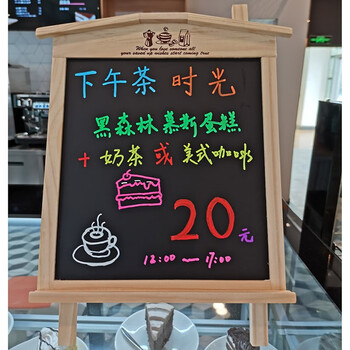 When you lose someone all
your saved up wishes start coming true
下午茶 时光
黑森林慕斯蛋糕
+ 奶茶 或 美式咖啡
20元
12:00 — 17:00